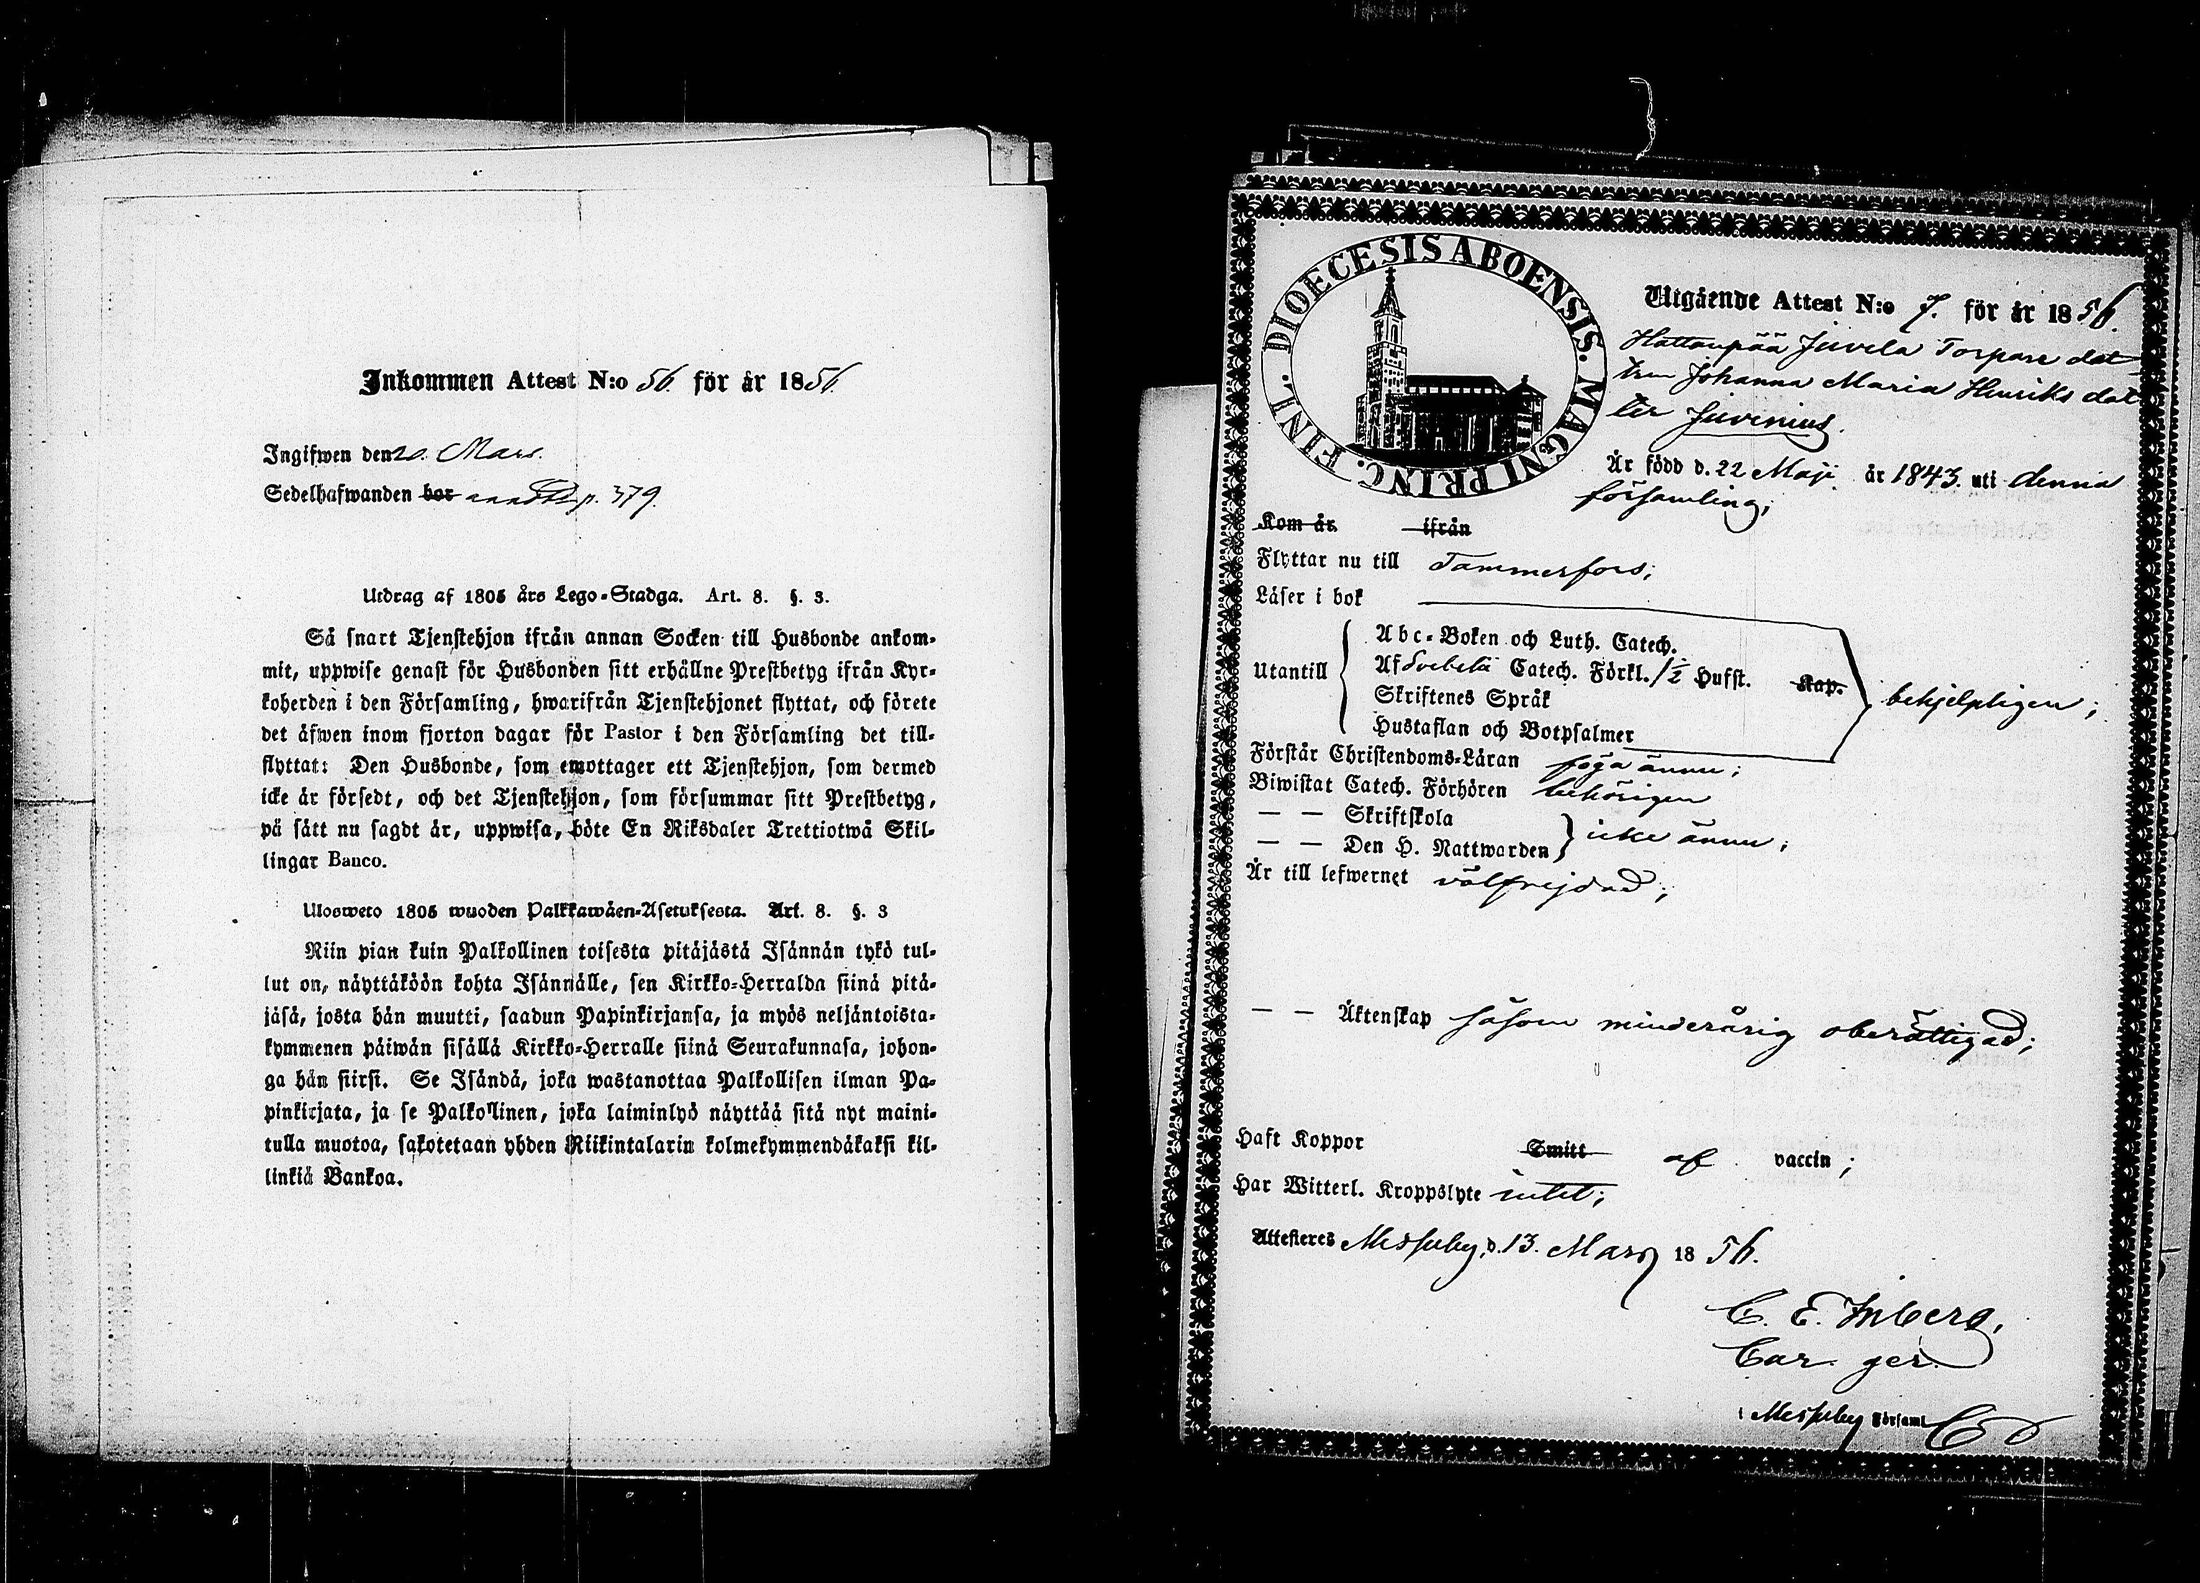 Inkommen Attest N:o 56. för år 1856.
Ingifwen den 20. Mars.
Sedelhafwanden bor p. 379.
Utdrag af 1805 års Lego-Stadga. Art. 8. §. 3.
Så snart Tjenstehjon ifrån annan Socken till Husbonde ankom-
mit, uppwise genast för Husbonden sitt erhållne Prestbetyg ifrån Kyr-
koherden i den Församling, hwarifrån Tjenstehjonet flyttat, och förete
det äfwen inom fjorton dagar för Pastor i den Församling det till-
flyttat: Den Husbonde, som emottager ett Tjenstehjon, som dermed
icke är försedt, och det Tjenstehjon, som försummar sitt Prestbetyg,
på sätt nu sagdt är, uppwisa, böte En Riksdaler Trettiotwå Skil-
lingar Banco.
Ulosweto 1805 wuoden Palkkawäen-Asetuksesta. Art. 8. §. 3
Niin pian kuin Palkollinen toisesta pitäjästä Isännän tykö tul-
lut on, näyttäköön kohta Isännälle, sen Kirkko-Herralda siinä pitä-
jäsä, josta hän muutti, saadun Papinkirjansa, ja myös neljäntoista-
kymmenen päiwän sisällä Kirkko-Herralle siinä Seurakunnasa, johon-
ga hän siirsi. Se Isändä, joka wastanottaa Palkollisen ilman Pa-
pinkirjata, ja se Palkollinen, joka laiminlyö näyttää sitä nyt maini-
tulla muotoa, sakotetaan yhden Riikintalarin kolmekymmendäkaksi kil-
linkiä Bankoa.
DIOECESIS ABOENSIS. MAGNI PRINC. FINL.
Utgående Attest N:o 7. för år 1856.
Hattanpää Juvela Torpare dot
tren Johanna Maria Henriks dot
ter Juvenius.
Är född d. 22 Maji år 1843. uti denna
församling;
Kom år ifrån
Flyttar nu till Tammerfors;
Läser i bok
Abc-Boken och Luth. Catech.
Utantill Af Svebelii Catech. Förkl. 1/2 Hufst. Kap. behjelpligen;
Skriftenes Språk
Hustaflan och Botpsalmer
Förstår Christendoms-Läran föga ännu;
Biwistat Catech. Förhören behörigen
— — Skriftskola
— — Den H. Nattwarden icke ännu;
Är till lefwernet välfrejdad;
— — Äktenskap såsom minderårig oberättigad;
Haft Koppor Smitt af vaccin;
Har Witterl. Kroppslyte intet;
Attesteres Messuby, d. 13. Mars 1856.
C. E. Inberg,
Cur. ger.
i Messuby Församl